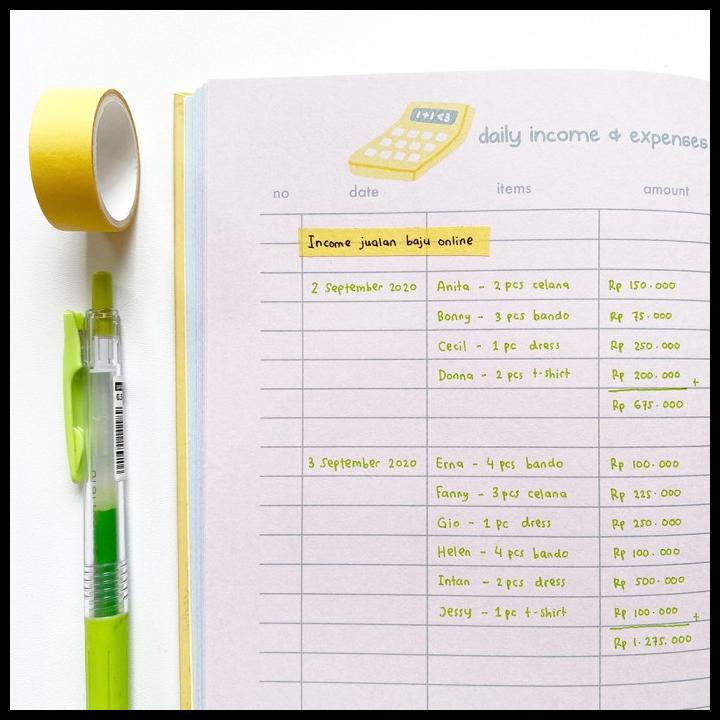 1+1<3
daily income & expenses
no date items amount
Income jualan baju online
2 September 2020 Anita - 2 pcs celana Rp 150.000
Bonny - 3 pcs bando Rp 75.000
Cecil - 1 pc dress Rp 250.000
Donna - 2 pcs t-shirt Rp 200.000 +
Rp 675.000
3 September 2020 Erna - 4 pcs bando Rp 100.000
Fanny - 3 pcs celana Rp 225.000
Gio - 1 pc dress Rp 250.000
Helen - 4 pcs bando Rp 100.000
Intan - 2 pcs dress Rp 500.000
Jessy - 1 pc t-shirt Rp 100.000 +
Rp 1.275.000